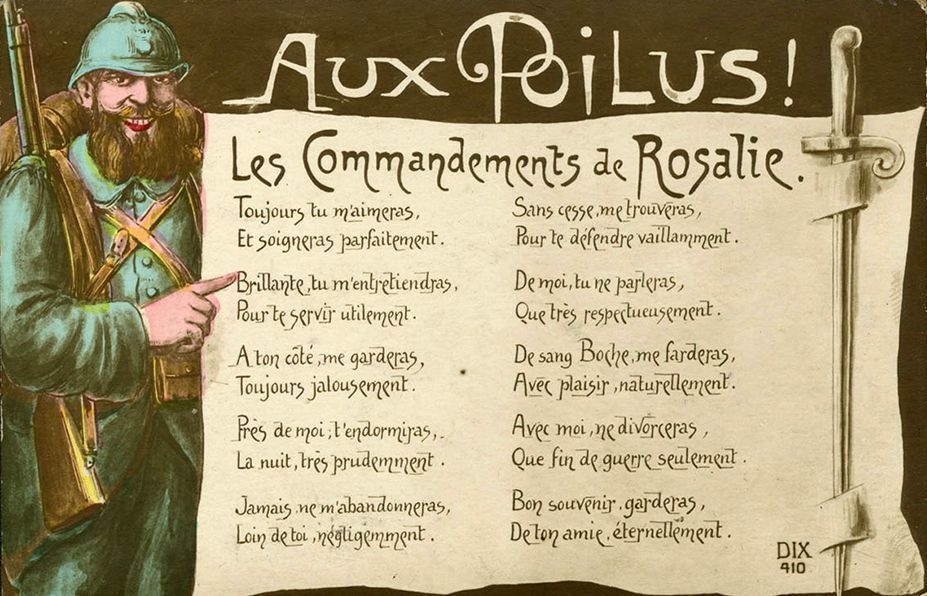 AUX POILUS!
Les Commandements de Rosalie.
Toujours tu m'aimeras,
Et soigneras parfaitement.
Brillante, tu m'entretiendras,
Pour te servir utilement.
A ton côté, me garderas,
Toujours jalousement.
Près de moi, t'endormiras,
La nuit, très prudemment.
Jamais, ne m'abandonneras,
Loin de toi, négligemment.
Sans cesse, me trouveras,
Pour te défendre vaillamment.
De moi, tu ne parleras,
Que très respectueusement.
De sang Boche, me farderas,
Avec plaisir, naturellement.
Avec moi, ne divorceras,
Que fin de guerre seulement.
Bon souvenir, garderas,
De ton amie, éternellement.
DIX
410